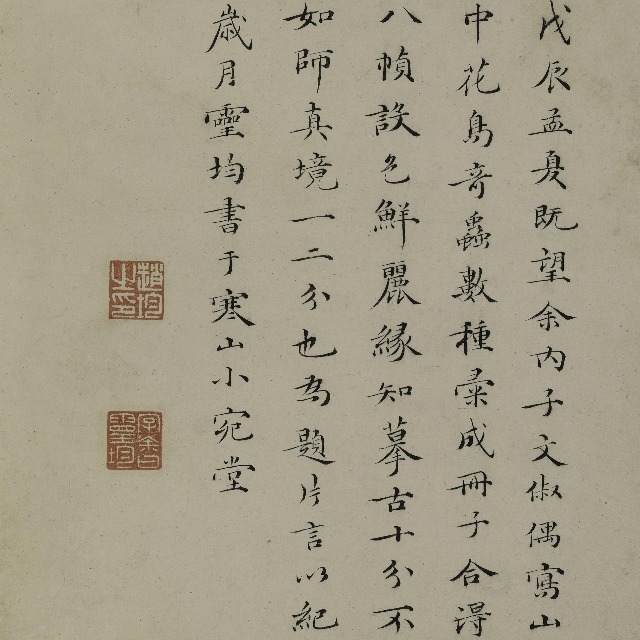 戊辰孟夏既望余内子文俶偶寫山
中花鳥奇蟲數種彙成冊子合得
八幀設色鮮麗緣知摹古十分不
如師真境一二分也為題片言以紀
歲月靈均書于寒山小宛堂
趙均之印
字余曰靈均